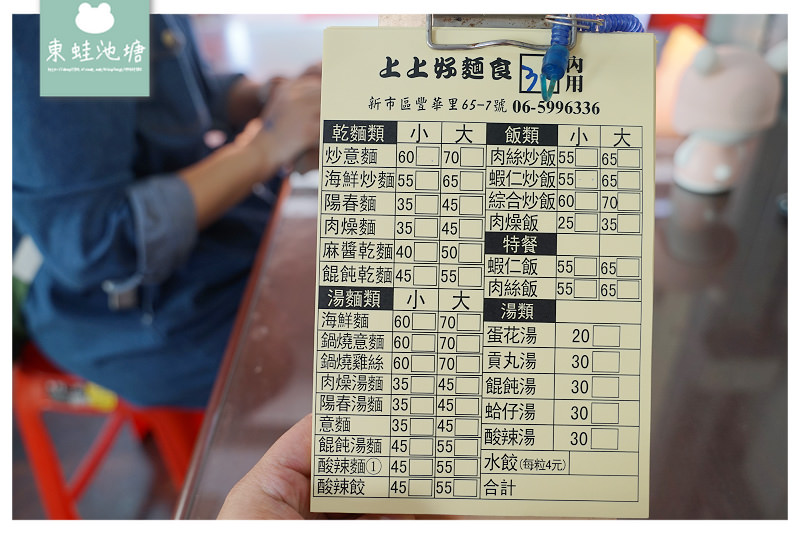 東蛙池塘
上上好麵食 3 內用
新市區豐華里65-7號 06-5996336
乾麵類 小 大
炒意麵 60 70
海鮮炒麵 55 65
陽春麵 35 45
肉燥麵 35 45
麻醬乾麵 40 50
餛飩乾麵 45 55
湯麵類 小 大
海鮮麵 60 70
鍋燒意麵 60 70
鍋燒雞絲 60 70
肉燥湯麵 35 45
陽春湯麵 35 45
意麵 35 45
餛飩湯麵 45 55
酸辣麵① 45 55
酸辣餃 45 55
飯類 小 大
肉絲炒飯 55 65
蝦仁炒飯 55 65
綜合炒飯 60 70
肉燥飯 25 35
特餐
蝦仁飯 55 65
肉絲飯 55 65
湯類
蛋花湯 20
貢丸湯 30
餛飩湯 30
蛤仔湯 30
酸辣湯 30
水餃(每粒4元)
合計